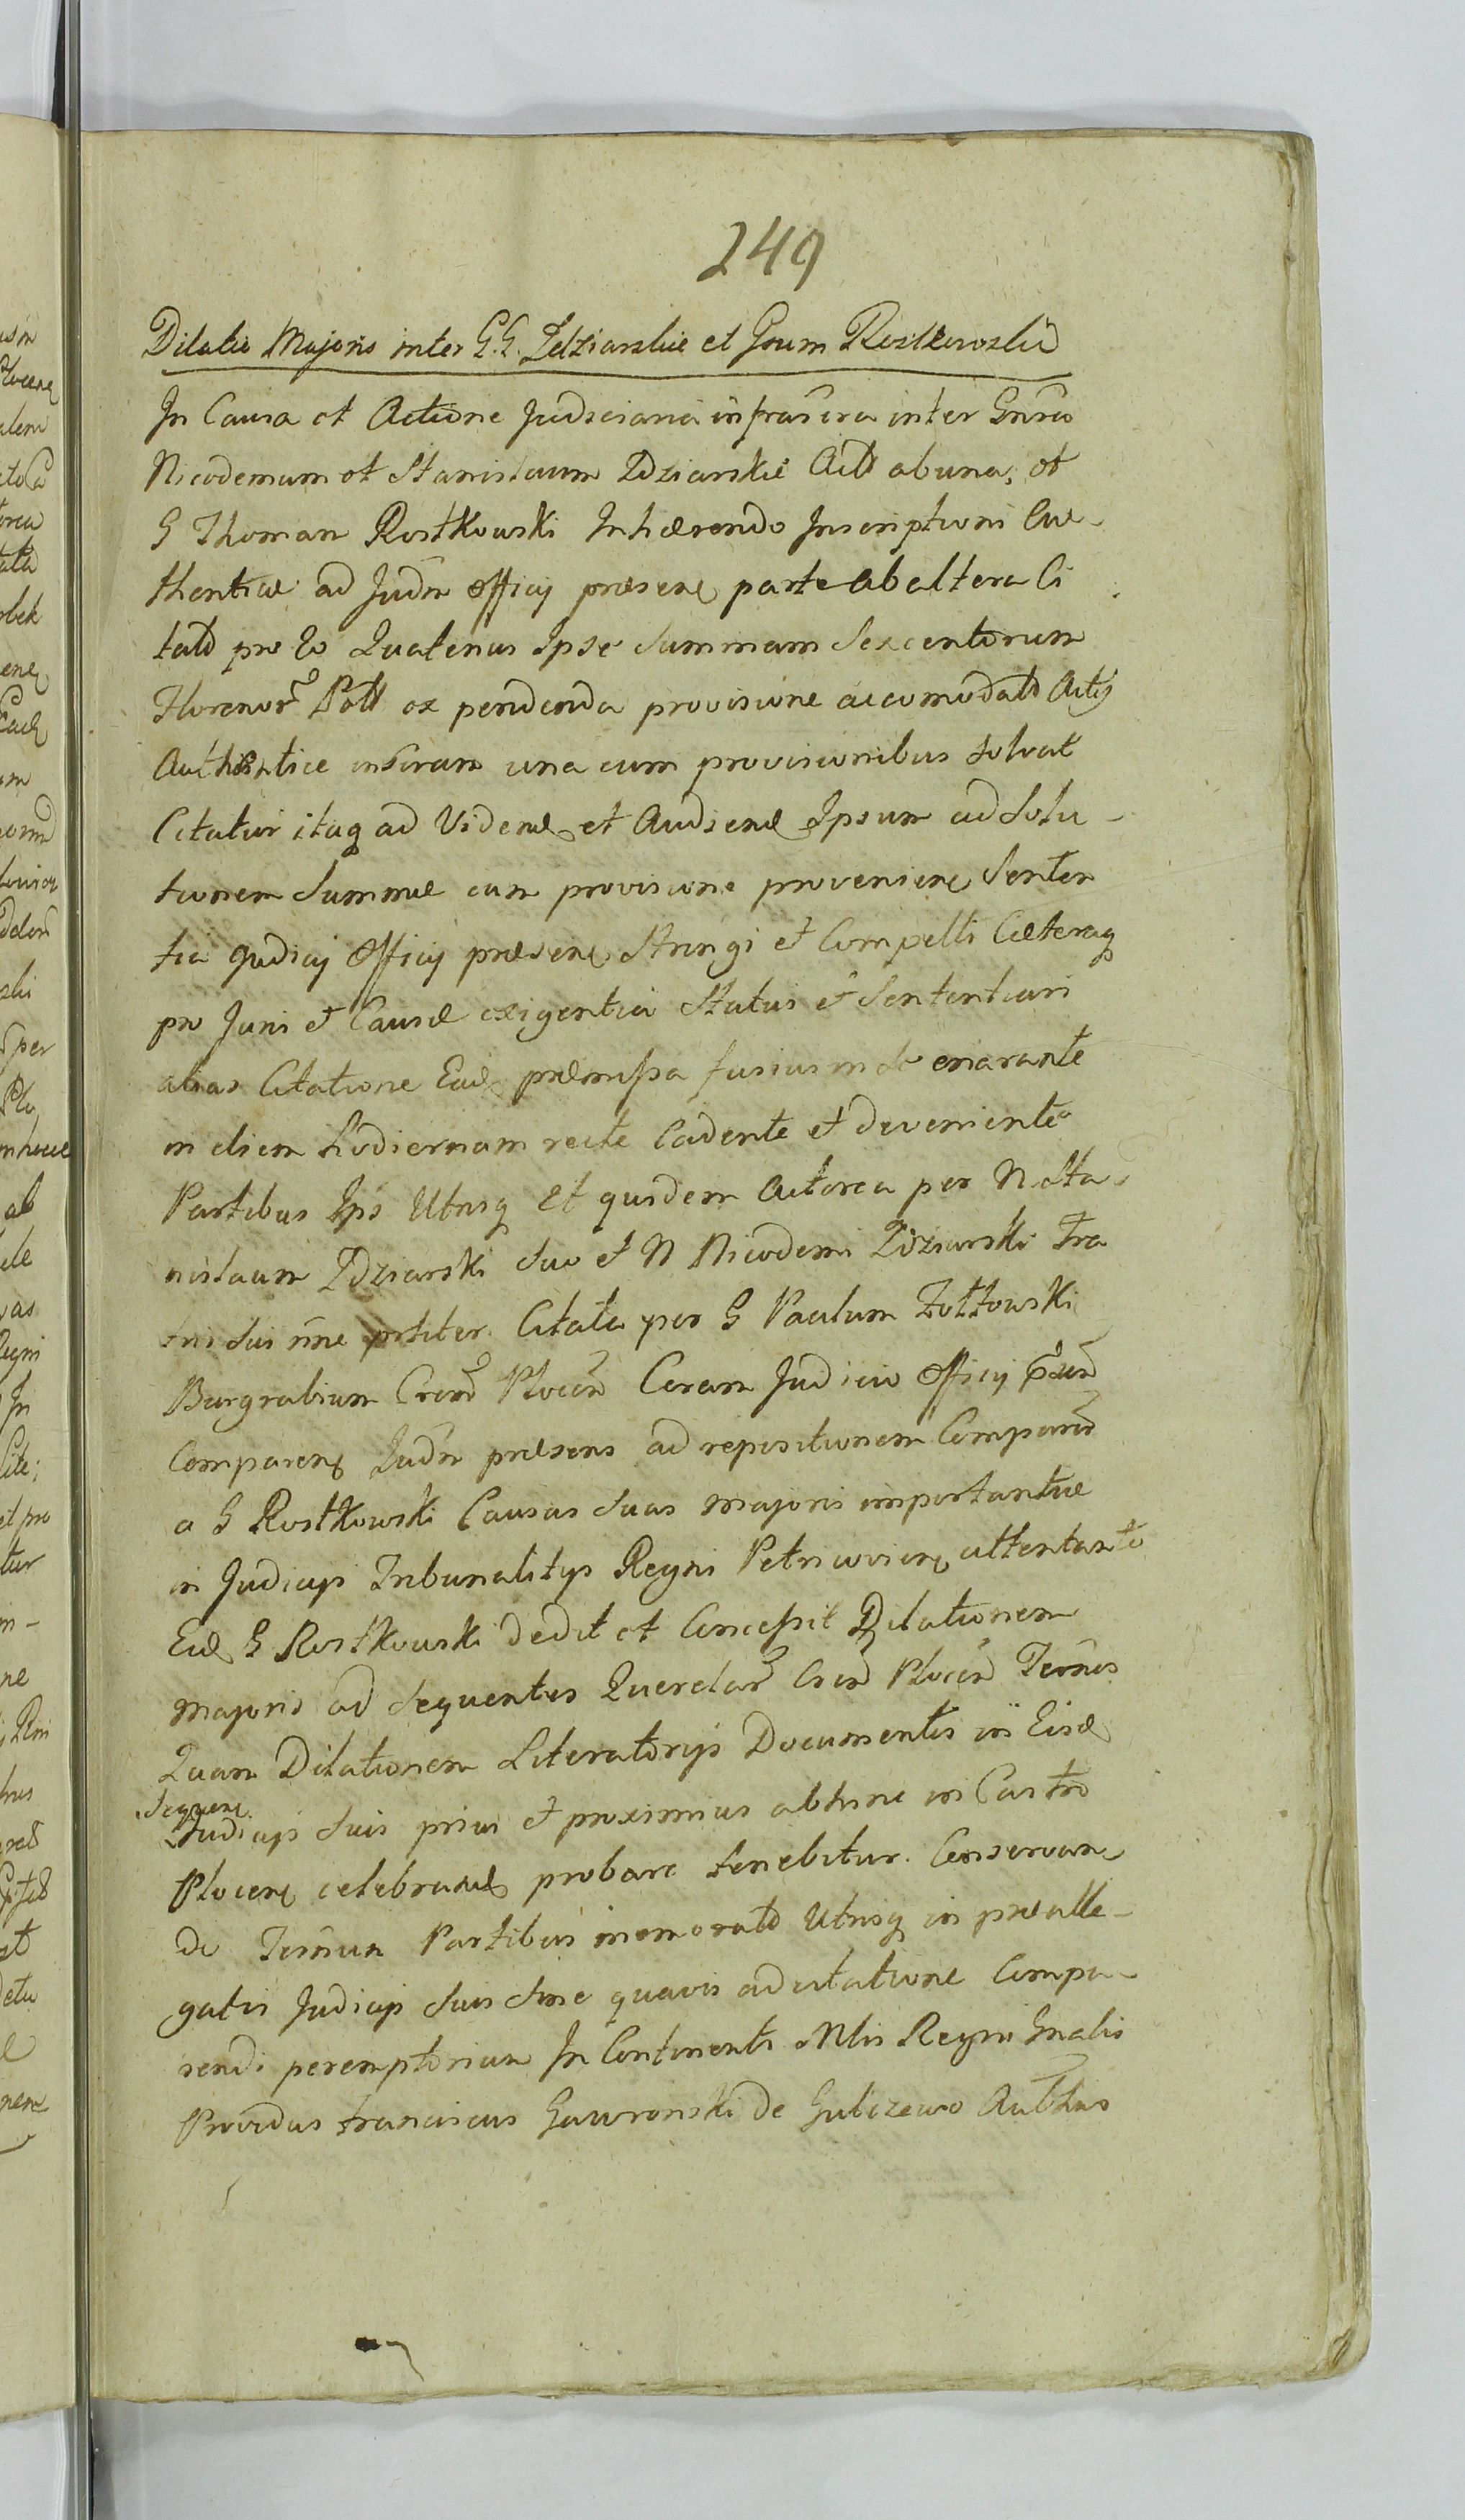 249
Dilatio Majoris inter G.G. Zdziarskie et Gnum Rostkowski
In Causa et Actione Judiciaria infrascra inter Gnsos
Nicodemum et Stanislaum Zdziarskie Act ab una, et
G Thomam Rostkowski Inhærendo Inscriptioni Au-
thenticæ ad Judm Officij præsens parte ab altera Ci
tato pro Eo Quatenus Ipse Summam Sexcentorum
Florenor Poll ex pendenda provisione accomodato
Authentice una cum provisionibus solvat
Citatur itaq ad Vidend et Audiend Ipsum ad Solu-
tionem Summæ cum provisione provenien Senten
tia Judicij Officij præsen Stringi et Compelli Cæteraq
pro Juris et Causæ exigentia Statui et Sententiari
alias Citatione Ead præmissa fusius in se enarante
in diem hodiernam recte Cadente et deveniente
Partibus Ips Utrisq Et quidem Actorea per N Sta-
nislaum Zdziarski Suo et N Nicodemi Zdziarski Fra
tris Sui nne Citata per G Paulum Zołtowski
Burgrabium Crem Plocen Coram Judicio Officij
Comparen Judm præsens ad repositionem
a G Rostkowski Causas Suas Majoris importantiæ
in Judicijs Tribunalitijs Regni Petricovien attentanto
Eid G Rostkowski dedit et Concessit Dilationem
Majoris ad Sequentes Querelar Cren Plocen Termos
Quam Dilationem Literatorijs Documentis in Eisd
Sequen
Judicijs Suis prius et proximius abhinc in Castro
Plocen celebrand probare tenebitur. Conservan
do Termum Partibus memorato Utrisq in prealle-
gatis Judicijs Suis Sine quavis adcitatione Compa-
rendi peremptorium In Continenti Mlis Regni Gnalis
Providus Franciscus Gawronski de Gulczewo Authus